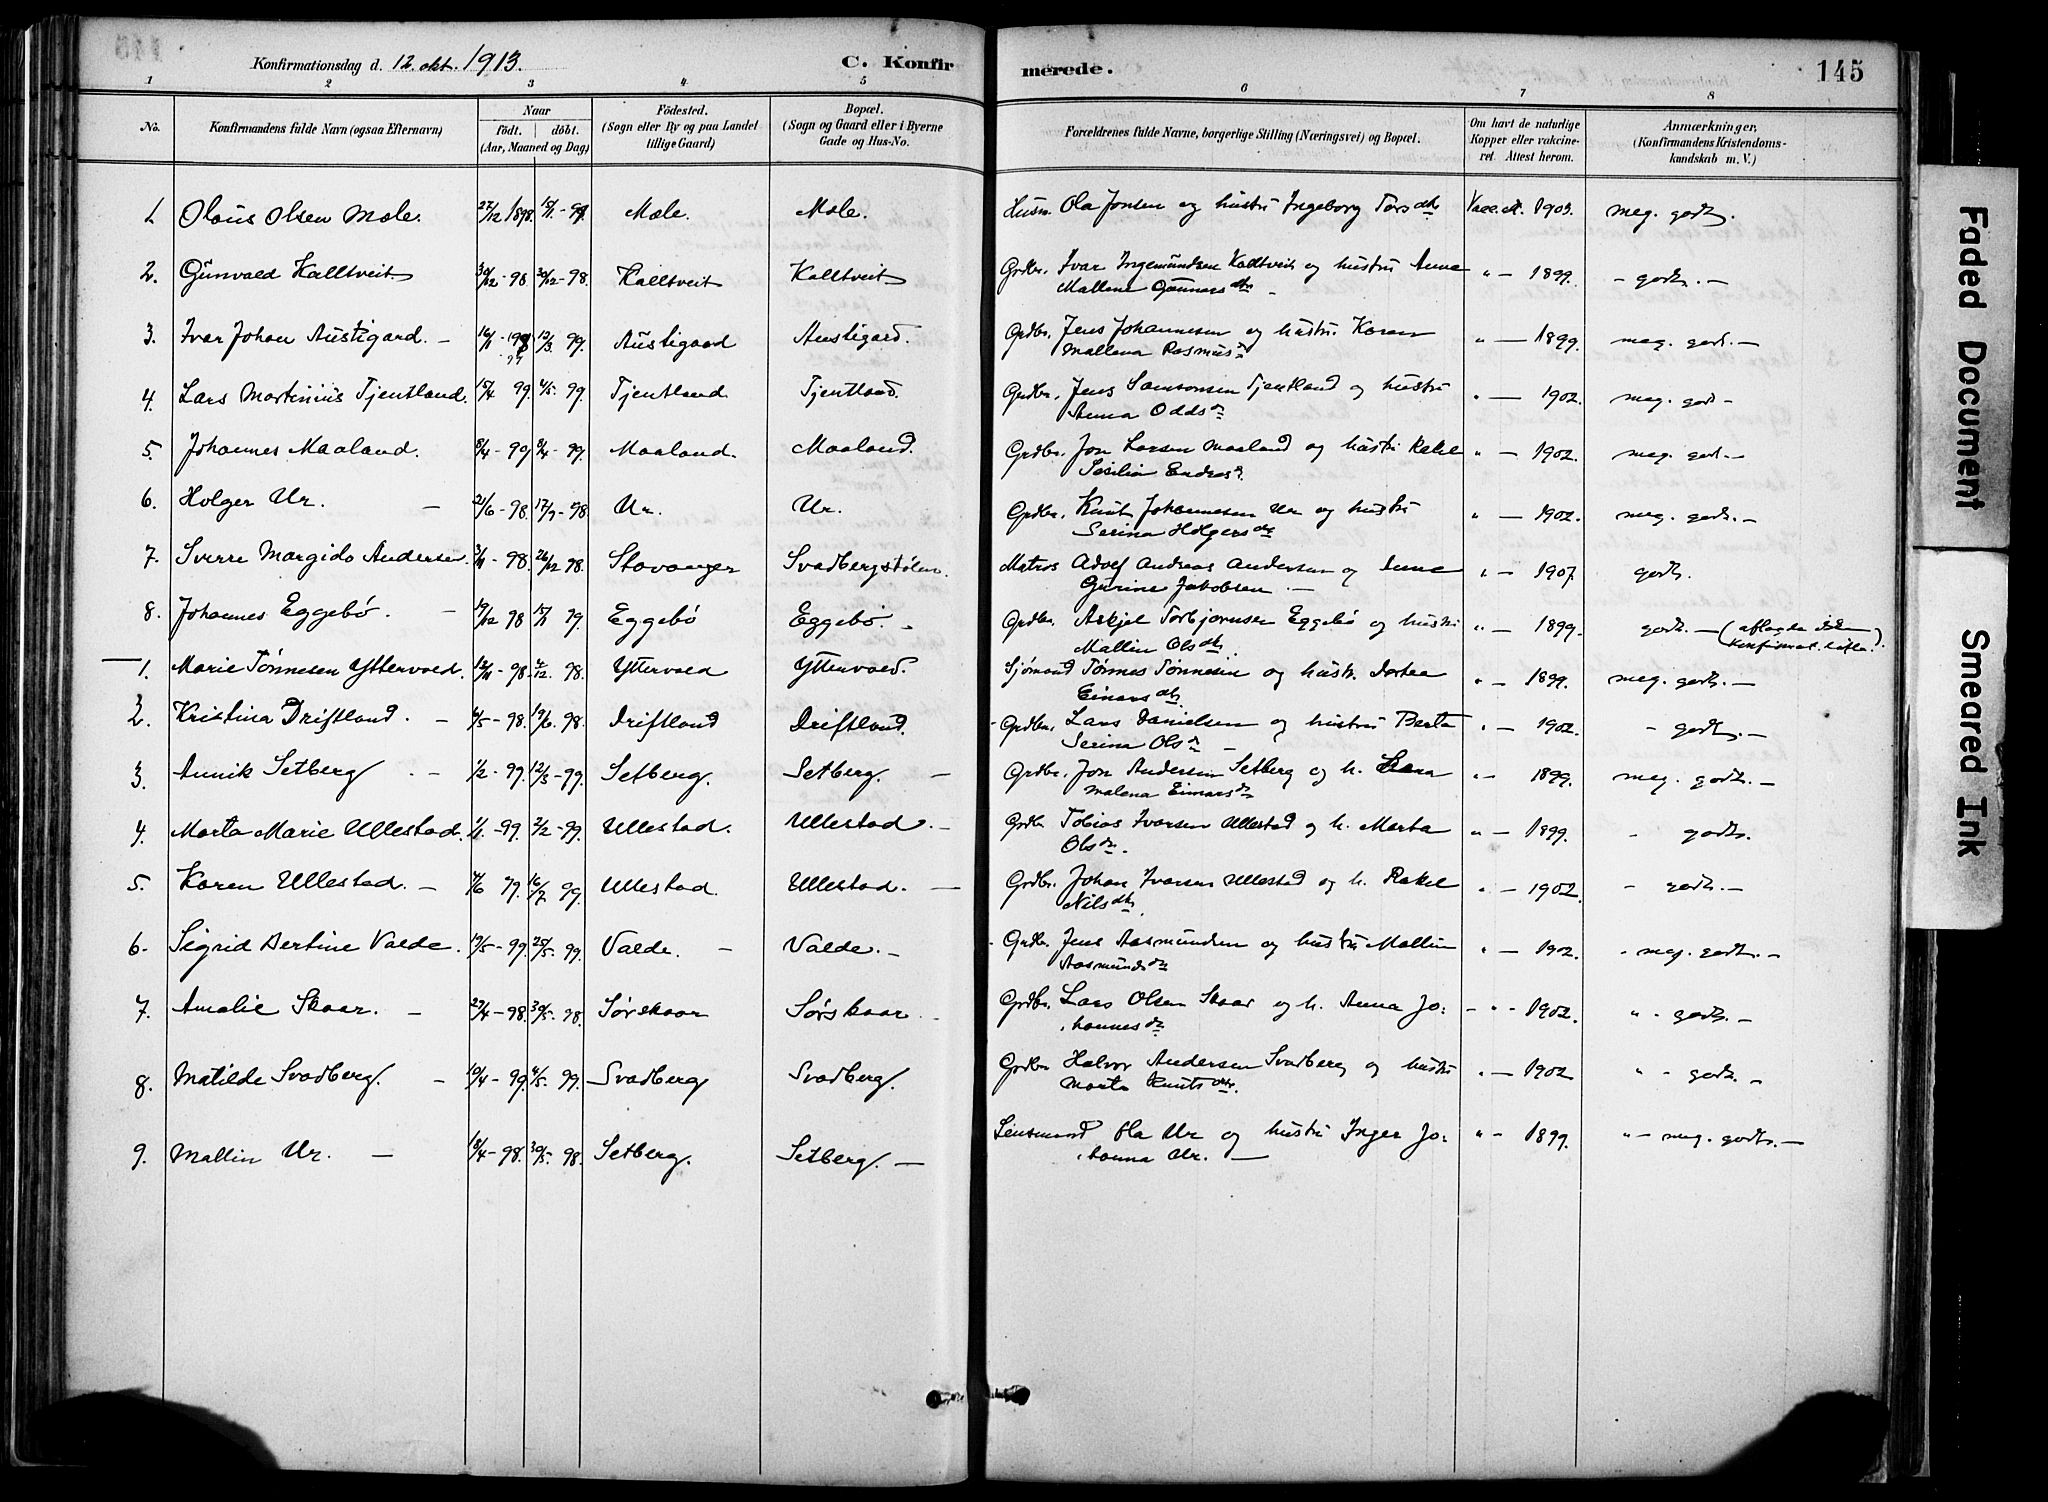 Konfirmationsdag d. 12. okt. 1913. C. Konfirmerede. 145
1 2 3 4 5 6 7 8
No. Konfirmandens fulde Navn (ogsaa Efternavn) Naar födt. döbt. (Aar, Maaned og Dag) Födested. (Sogn eller By og paa Landet tillige Gaard) Bopæl. (Sogn og Gaard eller i Byerne Gade og Hus-No. Forældrenes fulde Navne, borgerlige Stilling (Næringsvei) og Bopæl. Om havt de naturlige Kopper eller vakcineret. Attest herom. Anmærkninger, (Konfirmandens Kristendomskundskab m. V.)
1. Olaus Olsen Mæle. 27/12 1898 15/1 - 99 Mæle. Mæle. Husm. Ola Jonsen og hustru Ingeborg Torsdtr Vacc. at. 1903. meg. godt.
2. Gunvald Kalltveit 30/12 - 98 30/12 - 98. Kalltveit Kalltveit Grdbr. Ivar Ingemundsen Kalltveit og hustru Anna
Mallene Gunnarsdtr - " - 1899. - godt. -
3. Ivar Johan Austigard. - 16/1 - 99 12/3 99. Austigaard Austigard. Grdbr. Jens Johannesen og hustru Karen
Mallena Rasmusdr " - 1899. meg. godt. -
4. Lars Martinius Tjentland. 15/4 99. 4/5. 99. Tjentland Tjentland. Grdbr. Jens Samsonsen Tjentland og hustru
Anna Oddsdr " - 1902. meg. godt -
5. Johannes Maaland. 8/4 - 99 9/4 - 99. Maaland. Maaland. Grdbr. Jon Larsen Maaland og hustru Rakel
Sesilia Endresdr. " - 1902. meg. godt. -
6. Holger Ur. - 21/6 - 98. 17/7 - 98 Ur. Ur. Grdbr. Knut Johannesen Ur og hustru
Serina Holgersdtr " - 1902. meg. godt. -
7. Sverre Margido Andersen. 3/11 - 98. 26/12 98. Stavanger Svadbergstølen. Matros Adolf Andreas Andersen og Anne
Gurine Jakobsen. - " - 1907. godt.
8. Johannes Eggebö. - 19/12 98 15/1 99. Eggebö Eggebö. Grdbr. Askjel Torbjørnsen Eggebö og hustru
Mallin Olsdtr. " - 1899. godt. - (aflagde ikke
Konfirmat. löfte.)
1. Marie Tönnesen Yttervold. 12/11 - 98. 4/12. 98. Yttervold Yttervold. Sjömand Tönnes Tönnesen og hustr. Dortea
Einarsdtr. " - 1899. meg. godt. -
2. Kristina Driftland. - 4/5 - 98. 19/6. 98. Driftland Driftland. Grdbr. Lars Danielsen og hustru Berta
Serina Olsdr - " - 1902. - godt. -
3. Annik Setberg. - 1/2 - 99. 12/3 - 99. Setberg. Setberg. - Grdbr. Jon Andersen Setberg og h. Lena
Malena Einarsdtr " - 1899. meg. godt. -
4. Marta Marie Ullestad. 1/1 - 99. 2/2 - 99. Ullestad. Ullestad. - Grdbr. Tobias Ivarsen Ullestad og h. Marta
Olsdtr. " - 1899. - godt.
5. Karen Ullestad. - Ullestad. Ullestad. - Grdbr. Johan Ivarsen Ullestad og h. Rakel
Nilsdtr. " - 1902. - godt. -
6. Sigrid Bertine Valde. 19/5 - 99. 25/5. 99. Valde. - Valde. - Grdbr. Jens Aasmundsen og hustru Mallin
Aasmundsdtr " - 1902. " meg. godt. -
7. Amalie Skaar. - 27/4 - 98. 30/5. 98. Sörskaar Sörskaar Grdbr. Lars Olsen Skaar og h. Anna Jo-
hannesdtr - " - 1902. " - godt. -
8. Matilde Svadberg. - 10/4 - 99 4/5. 99. Svadberg Svadberg. Grdbr. Halvor Andersen Svadberg og hustru
Marta Knutsdtr. " - 1902 " - godt. -
9. Mallin Ur. - 18/4 - 98. 30/5. 98. Setberg. Setberg. - Lensmand Ola Ur og hustru Inger Jo-
hanna Ur. - " - 1899. " - meg. godt. -
Faded Document
Smeared Ink